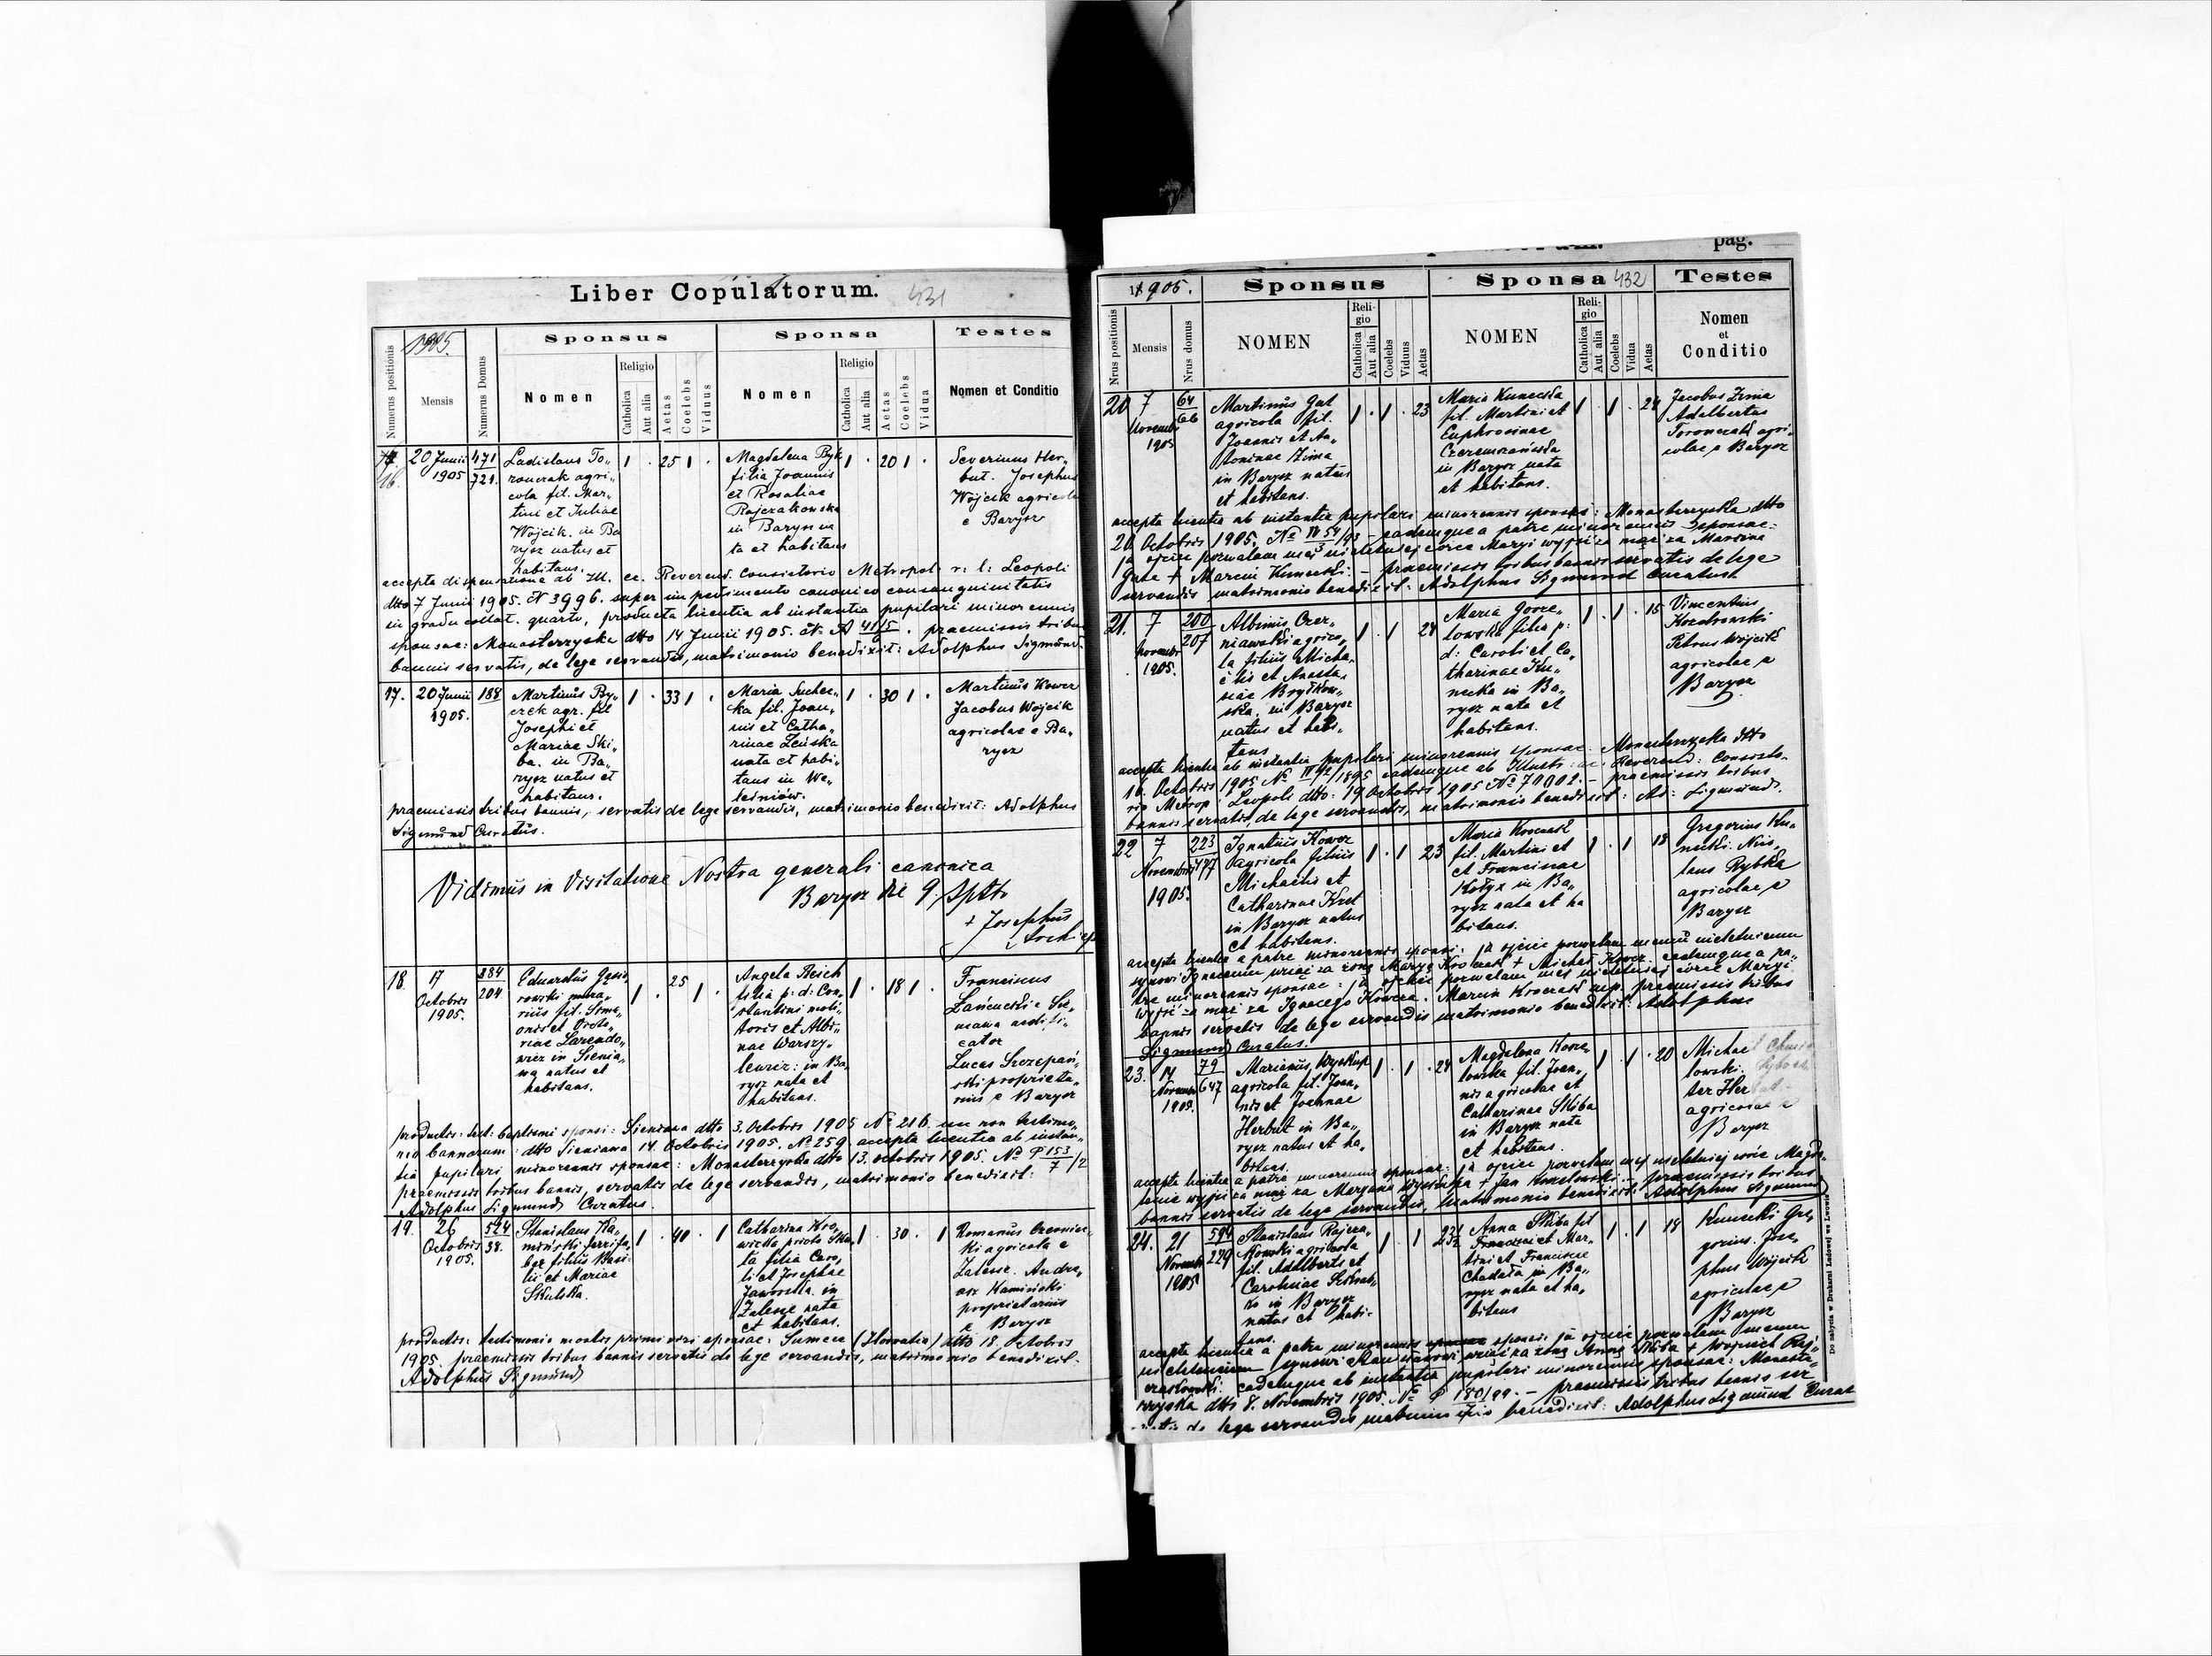 Liber Copulatorum. 431
1905.
Numerus positionis
Mensis
Numerus Domus
Sponsus
Nomen
Religio
Catholica
Aut alia
Aetas
Coelebs
Viduus
Sponsa
Nomen
Religio
Catholica
Aut alia
Aetas
Coelebs
Vidua
Testes
Nomen et Conditio
16.
20 Junii
1905
471
721
Ladislaus To„
ronczak agri„
cola fil. Mar„
tini et Juliae
Wojcik in Ba
rysz natus et
habitans.
1 . 25 1 .
Magdalena Byk
filia Joannis
et Rosaliae
Rajczakowska
in Barysz na
ta et habitans
1 . 20 1 .
Severinus Her„
but. Josephus
Wojcik agricolae
e Barysz
accepta dispensatione ab Ill. ac Reverend. Consistorio Metropol. r. l: Leopoli
dtto 7 Junii 1905. N 3996. super impedimento canonico consanguinitatis
in gradu collat. quarto, producta licentia ab instantia pupilari minorennis
sponsae: Monasterzyska dtto 14 Junii 1905. praemissis tribus
bannis servatis, de lege servandis, matrimonio benedixit: Adolphus Sigmund.
17.
20 Junii
1905.
188
Martinus By„
czek agr. fil
Josephi et
Mariae Ski„
ba. in Ba„
rysz natus et
habitans.
1 . 33 1 .
Maria Suche„
ka fil. Joan„
nis et Catha„
rinae Leńska
nata et habi„
tans in We„
leśniów.
1 . 30 1 .
Martinus Kower
Jacobus Wojcik
agricolae e Ba„
rysz
praemissis tribus bannis, servatis de lege servandis, matrimonio benedixit: Adolphus
Sigmund Curatus.
Vidimus in Visitatione Nostra generali canonica
Barysz die 9. Sptbr
+ Josephus
Archiep
18.
17
Octobris
1905.
384
204
Eduardus
rowski mura„
rius fil. Sime„
onis et Victo„
riae Lazendo„
wicz in Sienia„
wa natus et
habitans.
1 . 25 1 .
Angela Reich
filia p: d: Con„
stantini moli„
toris et Albi„
nae Warszy„
lewicz: in Ba„
rysz nata et
habitans.
1 . 18 1 .
Franciscus
Sie„
niawa aedifi„
cator
Lucas Szczepań„
ski proprieta„
rius e Barysz
productis: test: baptismi sponsi: Sieniawa dtto 3. Octobris 1905 No 216. nec non testimo„
nio bannorum: dtto Sieniawa 14. Octobris 1905. No 259. accepta licentia ab instan„
tia pupilari minorennis sponsae: Monasterzyska dtto 13. octobris 1905. No P 153/7/2
praemissis tribus bannis, servatis de lege servandis, matrimonio benedixit:
Adolphus Sigmund Curatus.
19.
26
Octobris
1905.
524
38.
Stanislaus Ka„
miński
filius Basi„
lii et Mariae
Skulska.
1 . 40 . 1
Catharina Kro„
wicka
filia Caro„
li et Josephae
Jaworska. in
Zalesie nata
et habitans.
1 . 30 . 1
Romanus
agricola e
Zalesie. Andre„
as Kamiński
proprietarius
e Barysz
productis: testimonio mortis primi viri sponsae: Sumece (Horvatia) dtto 18. Octobris
1905. praemissis tribus bannis servatis de lege servandis, matrimonio benedixit.
Adolphus Sigmund
pag.
1905.
Nrus positionis
Mensis
Nrus domus
Sponsus
NOMEN
Religio
Catholica
Aut alia
Coelebs
Viduus
Aetas
Sponsa 432
NOMEN
Religio
Catholica
Aut alia
Coelebs
Vidua
Aetas
Testes
Nomen
et
Conditio
20
7
Novembr
1905
64
66
Martinus Gut
agricola fil.
Joannis et An„
toninae Zima
in Barysz natus
et habitans.
1 . 1 . 23
Maria Kunecka
fil. Martini et
Euphrosinae
in Barysz nata
et habitans.
1 . 1 . 24
Jacobus Zima
Adalbertus
Toronczak agri„
colae e Barysz
accepta licentia ab instantia pupilari minorennis sponsi: Monasterzyska dtto
26 Octobris 1905. No IV 54/93 - eademque a patre minorennis sponsae:
ja ojciec pozwalam mej nieletniej córce Maryi wyjść za mąż za Marcina
Guta + Marcin Kunecki. - praemissis tribus bannis servatis de lege
servandis matrimonio benedixit: Adolphus Sigmund Curatus.
21.
7
Novembr
1905.
200
207
Albinus Czer„
niawski agrico„
la filius Micha„
elis et Anasta„
siae
in Barysz
natus et habi„
tans
1 . 1 24
Maria
filia p:
d: Caroli et Ca„
tharinae Ku„
necka in Ba„
rysz nata et
habitans.
1 . 1 . 15
Vincentius
Petrus Wojcik
agricolae e
Barysz
accepta licentia ab instantia pupilari minorennis sponsae: Monasterzyska dtto
16. Octobris 1905 No IV 92/1895 eademque ab Illustr: ac Reverend: Consisto„
rio Metrop: Leopoli dtto: 19 Octobris 1905 No 7002. - praemissis tribus
bannis servatis, de lege servandis, matrimonio benedixit: Ad: Sigmund.
22
7
Novembris
1905.
223
477
Ignatius Kower
agricola filius
Michaelis et
Catharinae Kret
in Barysz natus
et habitans.
1 . 1 23
Maria Kroczak
fil. Martini et
et Franciscae
in Ba„
rysz nata et ha
bitans.
1 . 1 18
Gregorius Ku„
necki. Nis„
taus Rybka
agricolae e
Barysz
accepta licentia a patre minorennis sponsi: ja ojciec pozwalam memu nieletniemu
synowi Ignacemu wziąć za żonę Maryę Kroczak + Michał Kower. eademque a pa„
tre minorennis sponsae: ja ojciec pozwalam mej nieletniej córce Maryi
wyjść za mąż za Ignacego Kowera. Marcin Kroczak mp. praemissis tribus
bannis servatis de lege servandis matrimonio benedixit: Adolphus
Sigmund Curatus
23.
14
Novembr
1905.
79
647
Marianus Wyskup
agricola fil. Joan„
nis et Joannae
Herbut in Ba„
rysz natus et ha„
bitans.
1 . 1 . 24
Magdalena Kozie„
lowska fil. Joan„
nis agricolae et
Catharinae Skiba
in Barysz nata
et habitans.
1 . 1 . 20
Michael
lowski.
ter Herbut
agricolae e
Barysz
accepta licentia a patre minorennis sponsae: ja ojciec pozwalam mej nieletniej córce Magda„
lenie wyjść za mąż za Maryana Wyskupa + Jan praemissis tribus
bannis servatis de lege servandis, matrimonio benedixit: Adolphus Sigmund
24.
21
Novembr
1905
594
229
Stanislaus Rajcza„
kowski agricola
fil. Adalberti et
Carolinae
in Barysz
natus et habi„
tans.
1 . 1 23½
Anna Skiba fil
et Mar„
tini et Franciscae
in Ba„
rysz nata et ha„
bitans
1 . 1 18
Kunecki Gre„
gorius. Jose„
phus Wojcik
agricolae e
Barysz
accepta licentia a patre minorennis sponsi: ja ojciec pozwalam memu
nieletniemu synowi Stanisławowi wziąć za żonę Annę Skiba + Wojciech Raj„
czakowski. eademque ab instantia pupilari minorennis sponsae: Monaste„
rzyska dtto 8. Novembris 1905. No P 180/99. - praemissis tribus bannis ser
vatis de lege servandis matrimonio benedixit: Adolphus Sigmund Curat
Do nabycia w Drukarni Ludowej we Lwowie